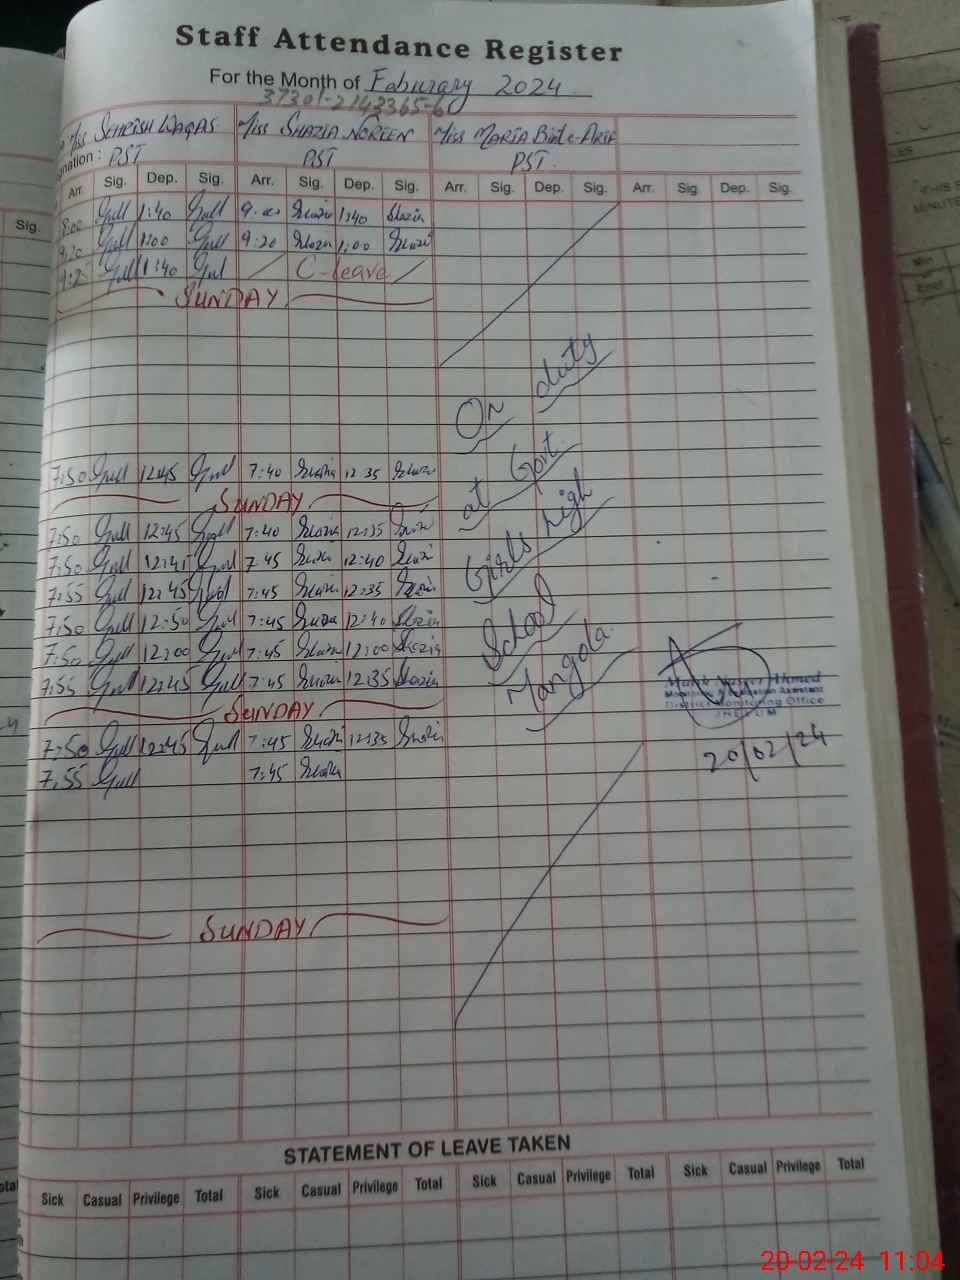 Staff Attendance Register
For the Month of Feburary 2024
37301-2142365-6
Miss SEHRISH WAQAS Miss SHAZIA NOREEN Miss MARIA Bint-e-ARIF
nation : PST PST PST
Sig. Arr. Sig. Dep. Sig. Arr. Sig. Dep. Sig. Arr. Sig. Dep. Sig. Arr. Sig. Dep. Sig.
8:00 1:40 9:00 Shazia 1:40 Shazia
9:20 1:00 9:20 Shazia 1:00 Shazia
1:40 C-leave
SUNDAY
On duty
7:50 12:45 7:40 Shazia 12:35 Shazia
at Govt.
SUNDAY
7:50 12:45 7:40 Shazia 12:35 Shazia
Girls high
7:50 12:45 7:45 Shazia 12:40 Shazia
7:55 12:45 7:45 Shazia 12:35 Shazia
7:50 12:50 7:45 Shazia 12:40 Shazia
School
7:50 12:00 7:45 Shazia 12:00 Shazia
7:55 12:45 7:45 Shazia 12:35 Shazia
Mangola.
Malik Naseer Ahmed
Monitoring & Evaluation Assistant
District Monitoring Office
JHELUM
SUNDAY
7:50 12:45 7:45 Shazia 12:35 Shazia
20/02/24
7:55 7:45 Shazia
SUNDAY
STATEMENT OF LEAVE TAKEN
Sick Casual Privilege Total Sick Casual Privilege Total Sick Casual Privilege Total Sick Casual Privilege Total
20-02-24 11:04